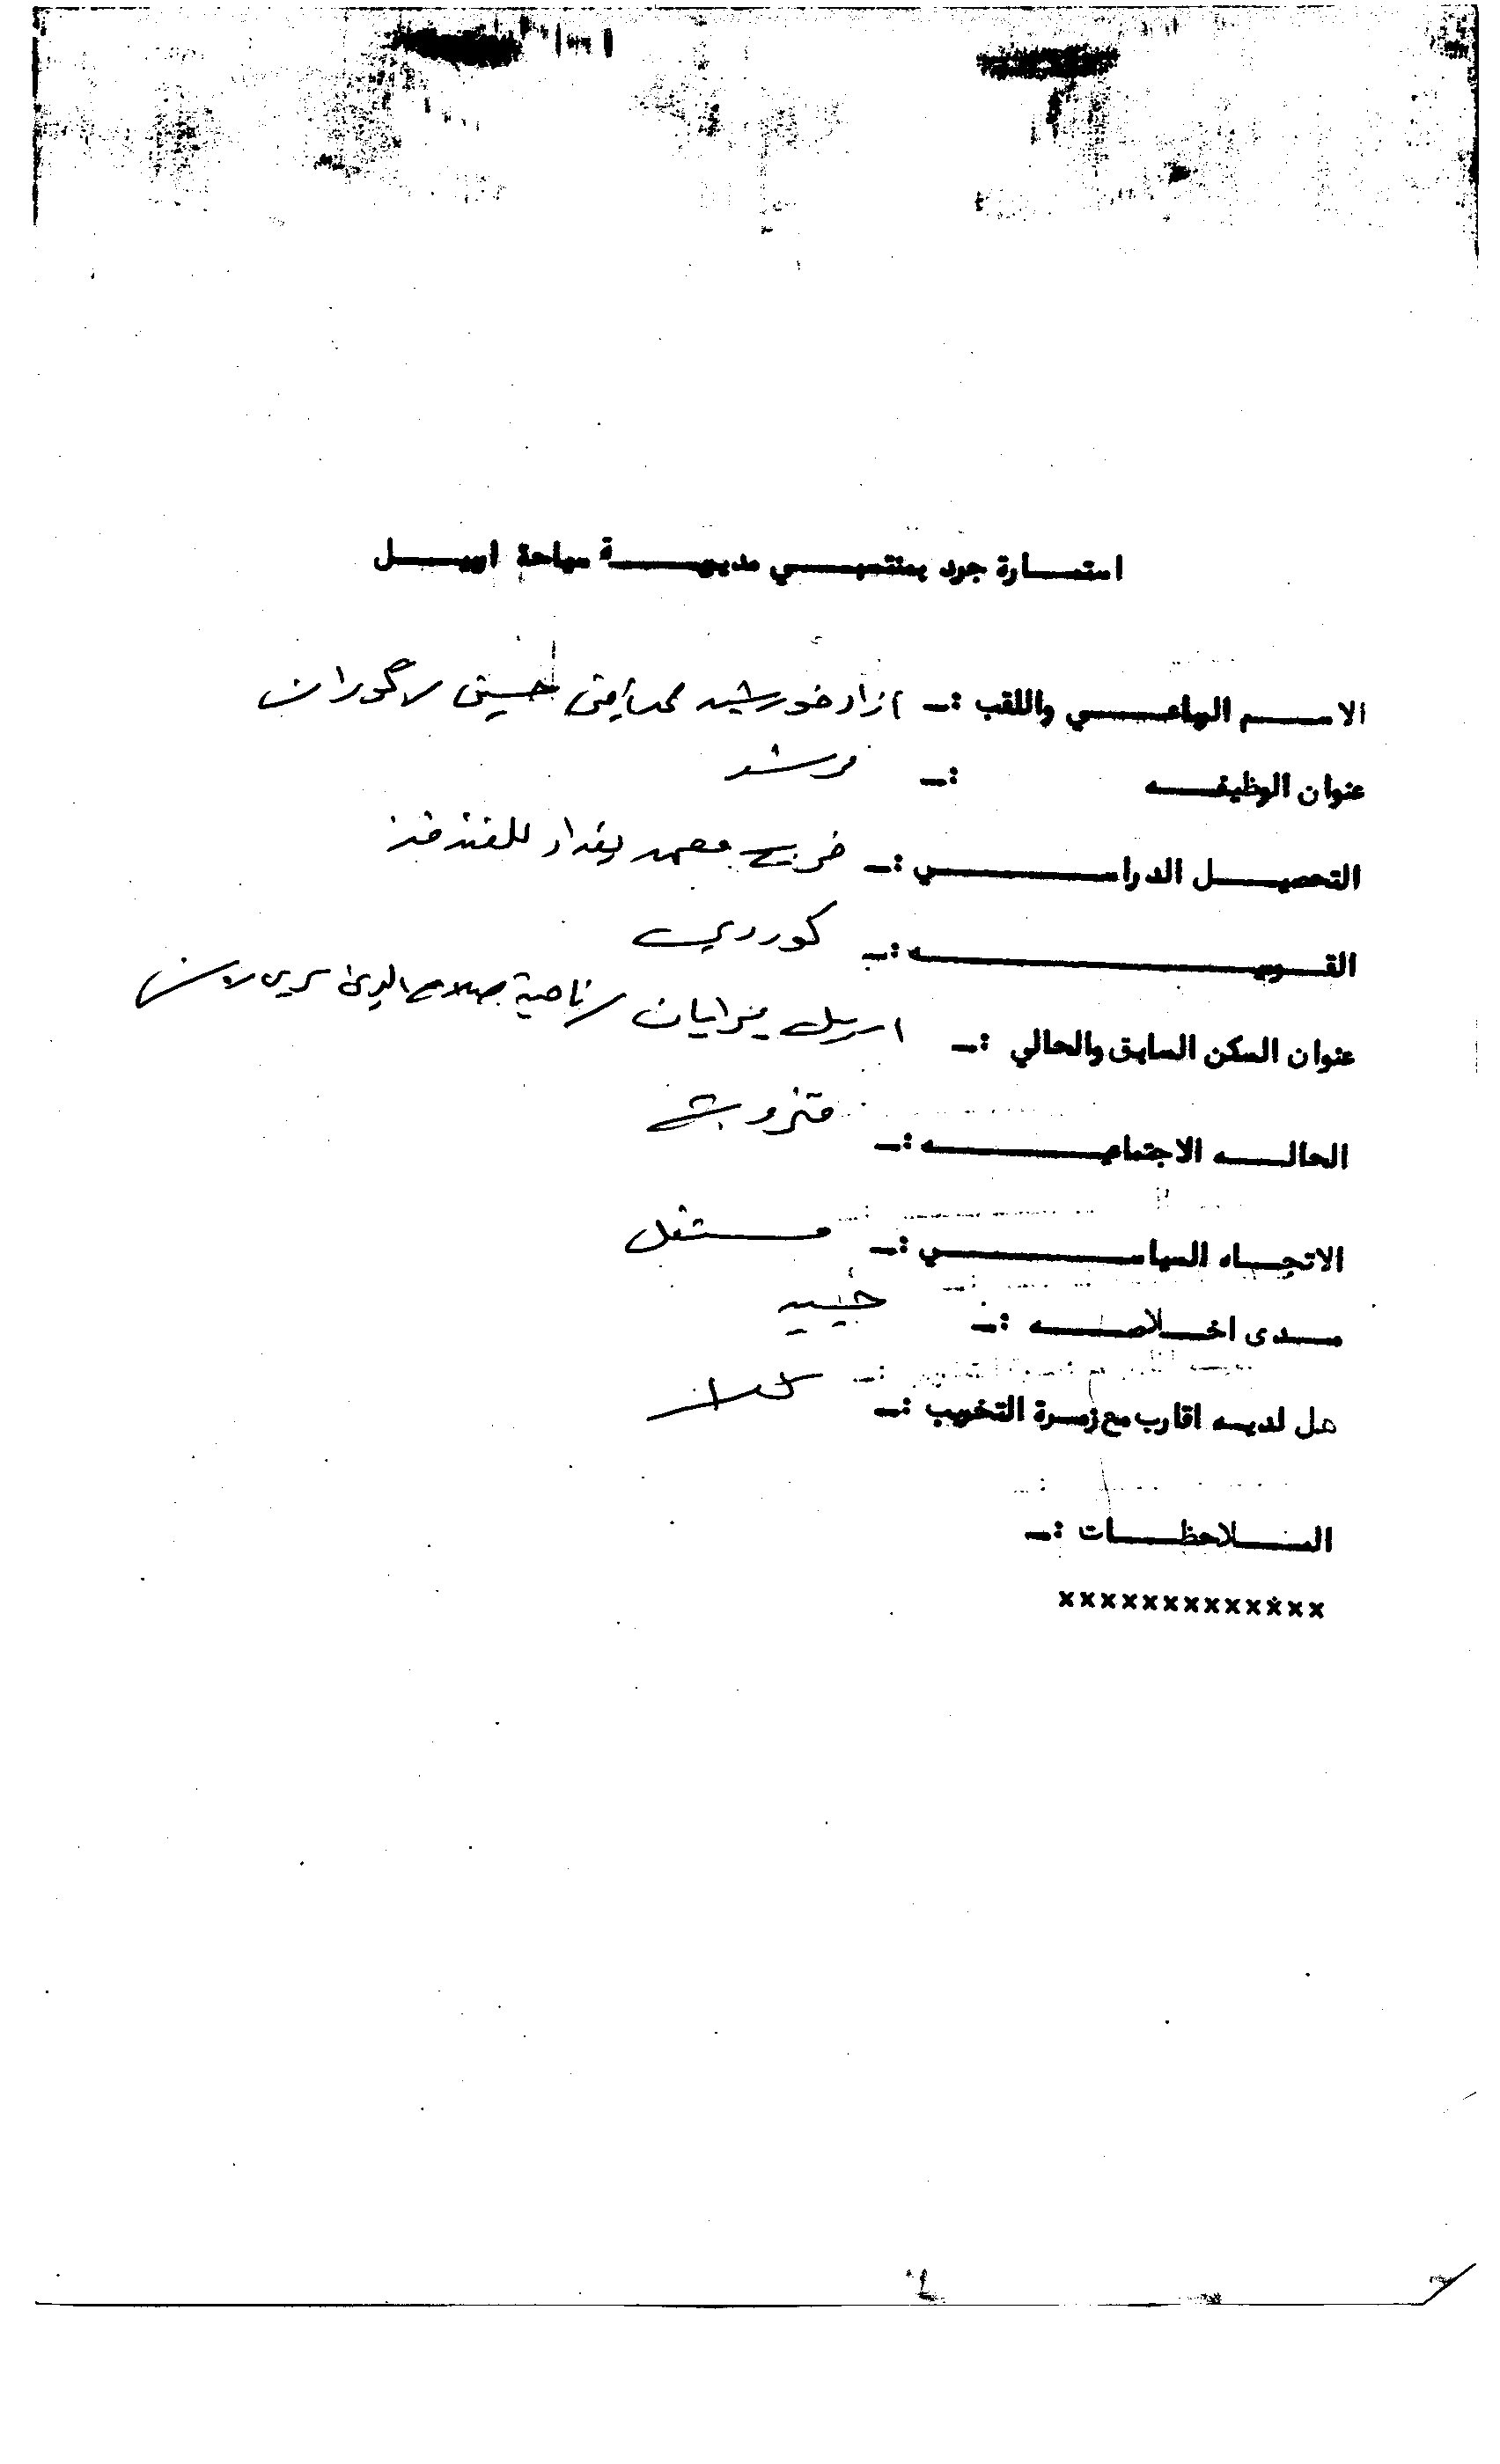 استمارة جرد بمنتسبي مديرية سياحة اربيل
الاسم الرباعي واللقب :ـ ازاد خورشيد محمدأمين حسين / گوران
عنوان الوظيفه :ـ مرشد
التحصيل الدراسي :ـ خريج معهد بغداد للفندقة
القوميه :ـ كوردي
عنوان السكن السابق والحالي :ـ اربيل / ناحية صلاح الدين
الحاله الاجتماعيه :ـ متزوج
الاتجاه السياسي :ـ مستقل
مدى اخلاصه :ـ جيد
هل لديه اقارب مع زمرة التخريب :ـ كلا
الملاحظات :ـ
×××××××××××××